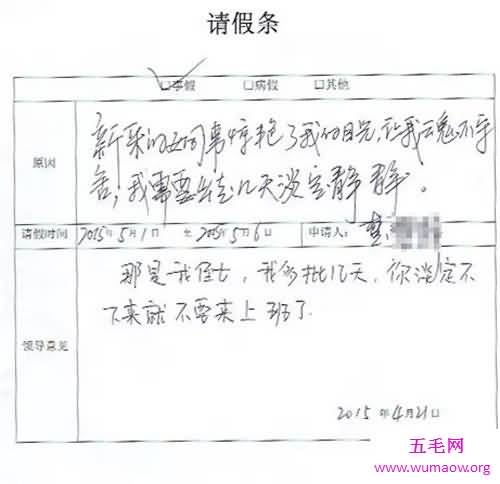 请假条
☑事假 □病假 □其他
原因
新来的女同事惊艳了我的目光,让我云魂不守
舍,我需要出去几天淡定静静。
请假时间 2015年5月1 至 2015年5月6日 申请人:
领导意见
那是我侄女,我多批几天,你淡定不
下来就不要来上班了.
2015年4月21日
五毛网
www.wumaow.org